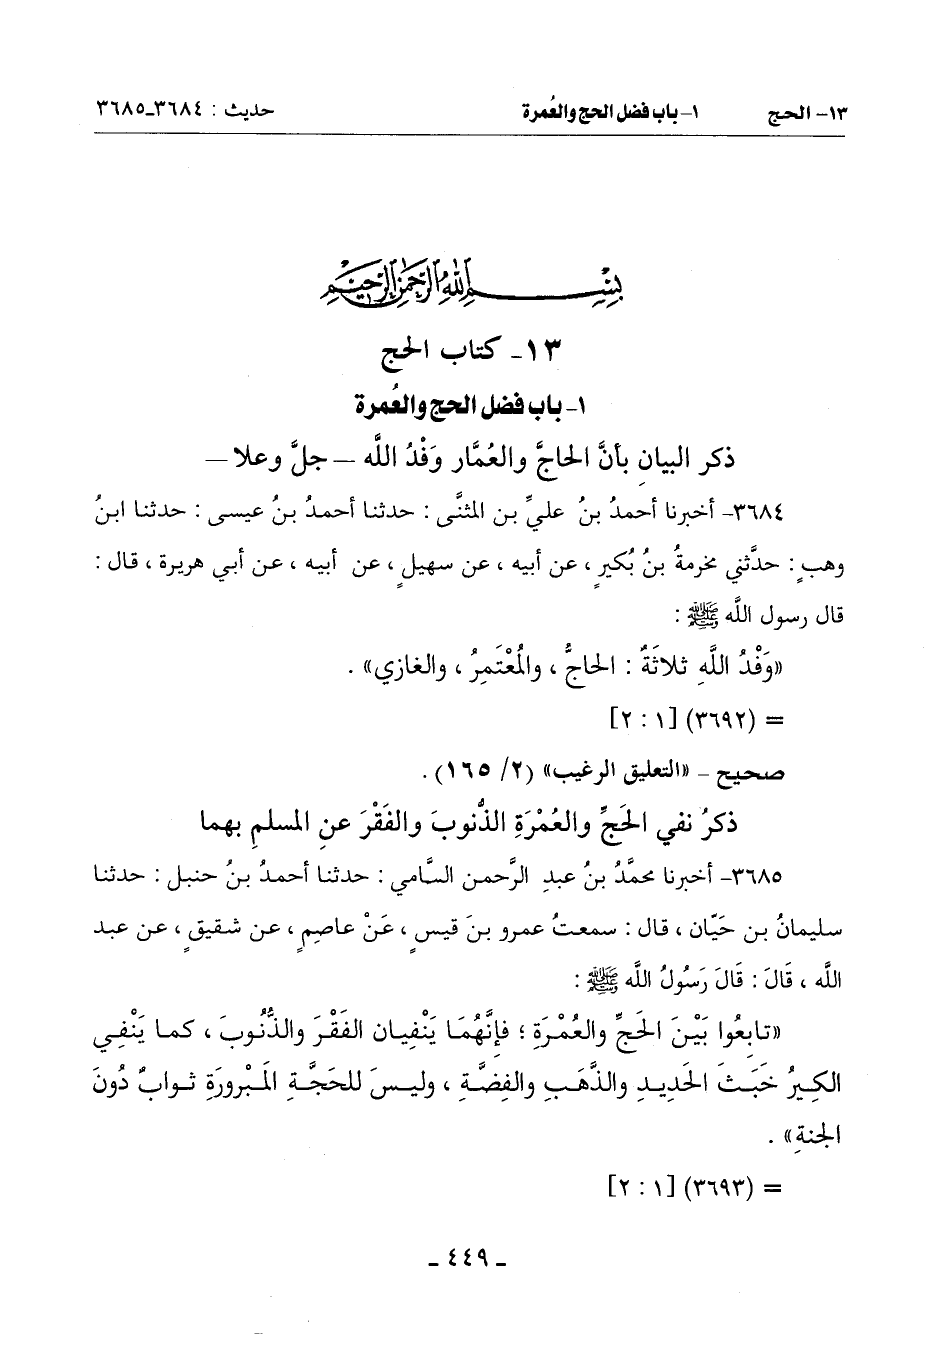 ١٣- الحج ١- باب فضل الحج والعُمرة حديث : ٣٦٨٤-٣٦٨٥
بِسْمِ اللهِ الرَّحْمنِ الرَّحِيْمِ
١٣- كتاب الحج
١- باب فضل الحج والعُمرة
ذكر البيانِ بأنَّ الحاجَّ والعُمَّار وَفْدُ اللَّه – جلَّ وعلا –
٣٦٨٤- أخبرنا أحمدُ بنُ عليِّ بن المثنَّى : حدثنا أحمدُ بنُ عيسى : حدثنا ابنُ
وهبٍ : حدَّثني مخرمةُ بنُ بُكيرٍ ، عن أبيه ، عن سهيلٍ ، عن أبيه ، عن أبي هريرة ، قال :
قال رسول اللَّه ﷺ :
«وَفْدُ اللَّهِ ثلاثَةٌ : الحاجُّ ، والمُعْتَمِرُ ، والغازي» .
= (٣٦٩٢) [١ : ٢]
صحيح – «التعليق الرغيب» (٢/ ١٦٥) .
ذكرُ نفي الحَجِّ والعُمْرَةِ الذُّنوبَ والفَقْرَ عنِ المسلمِ بهما
٣٦٨٥- أخبرنا محمَّدُ بنُ عبدِ الرَّحمن السَّامي : حدثنا أحمدُ بنُ حنبل : حدثنا
سليمانُ بن حَيّان ، قال : سمعتُ عمرو بنَ قيسٍ ، عَنْ عاصمٍ ، عن شقيقٍ ، عن عبد
اللَّه ، قَالَ : قَالَ رَسُولُ اللَّه ﷺ :
«تابِعُوا بَيْنَ الحَجِّ والعُمْرَةِ ؛ فإنَّهُمَا يَنْفِيان الفَقْرَ والذُّنُوبَ ، كما يَنْفِي
الكِيرُ خَبَثَ الحَديدِ والذَّهَبِ والفِضَّةِ ، وليسَ للحَجَّةِ المَبْرورَةِ ثوابٌ دُونَ
الجنةِ» .
= (٣٦٩٣) [١ : ٢]
- ٤٤٩ -